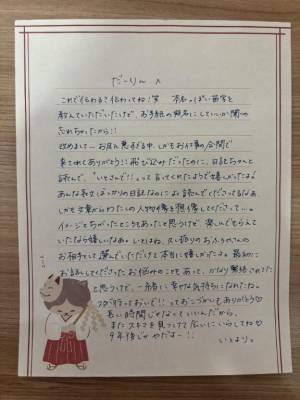 だーりん へ
これで伝わる？伝わってね！笑 本名っぽい苗字を
教えていただいたけど、お手紙の宛名にしていいか聞くの
忘れちゃったから!!
改めまして お足元悪い中、しかもお仕事の合間で
来てくれてありがとう!! 飛び込みだったのに、日記ちゃんと
読んで、"いとさんで!!"って言ってくれたようで嬉しかったよ!
あんな長文ばっかりの日記なのによく読んでくださってるなぁ
しかも文章からわたしの人物像を想像してくださって…。
イメージとちがったところもあったと思うけど、楽しんでもらえて
いたなら嬉しいなぁ。いとはね、久し振りのお
お相手として選んでいただけて本当に嬉しかったよ。最初に
お話してくださったお悩みのこともあって、かなり緊張されてた
と思うけど、一緒に幸せな気持ちになれたね。
行っておいで!!っておこづかいもありがとう♡
長い時間じゃなくていいんだから、
またスキマを見つけて会いにいらしてね♡
9年後じゃやだよー!!
いとより。